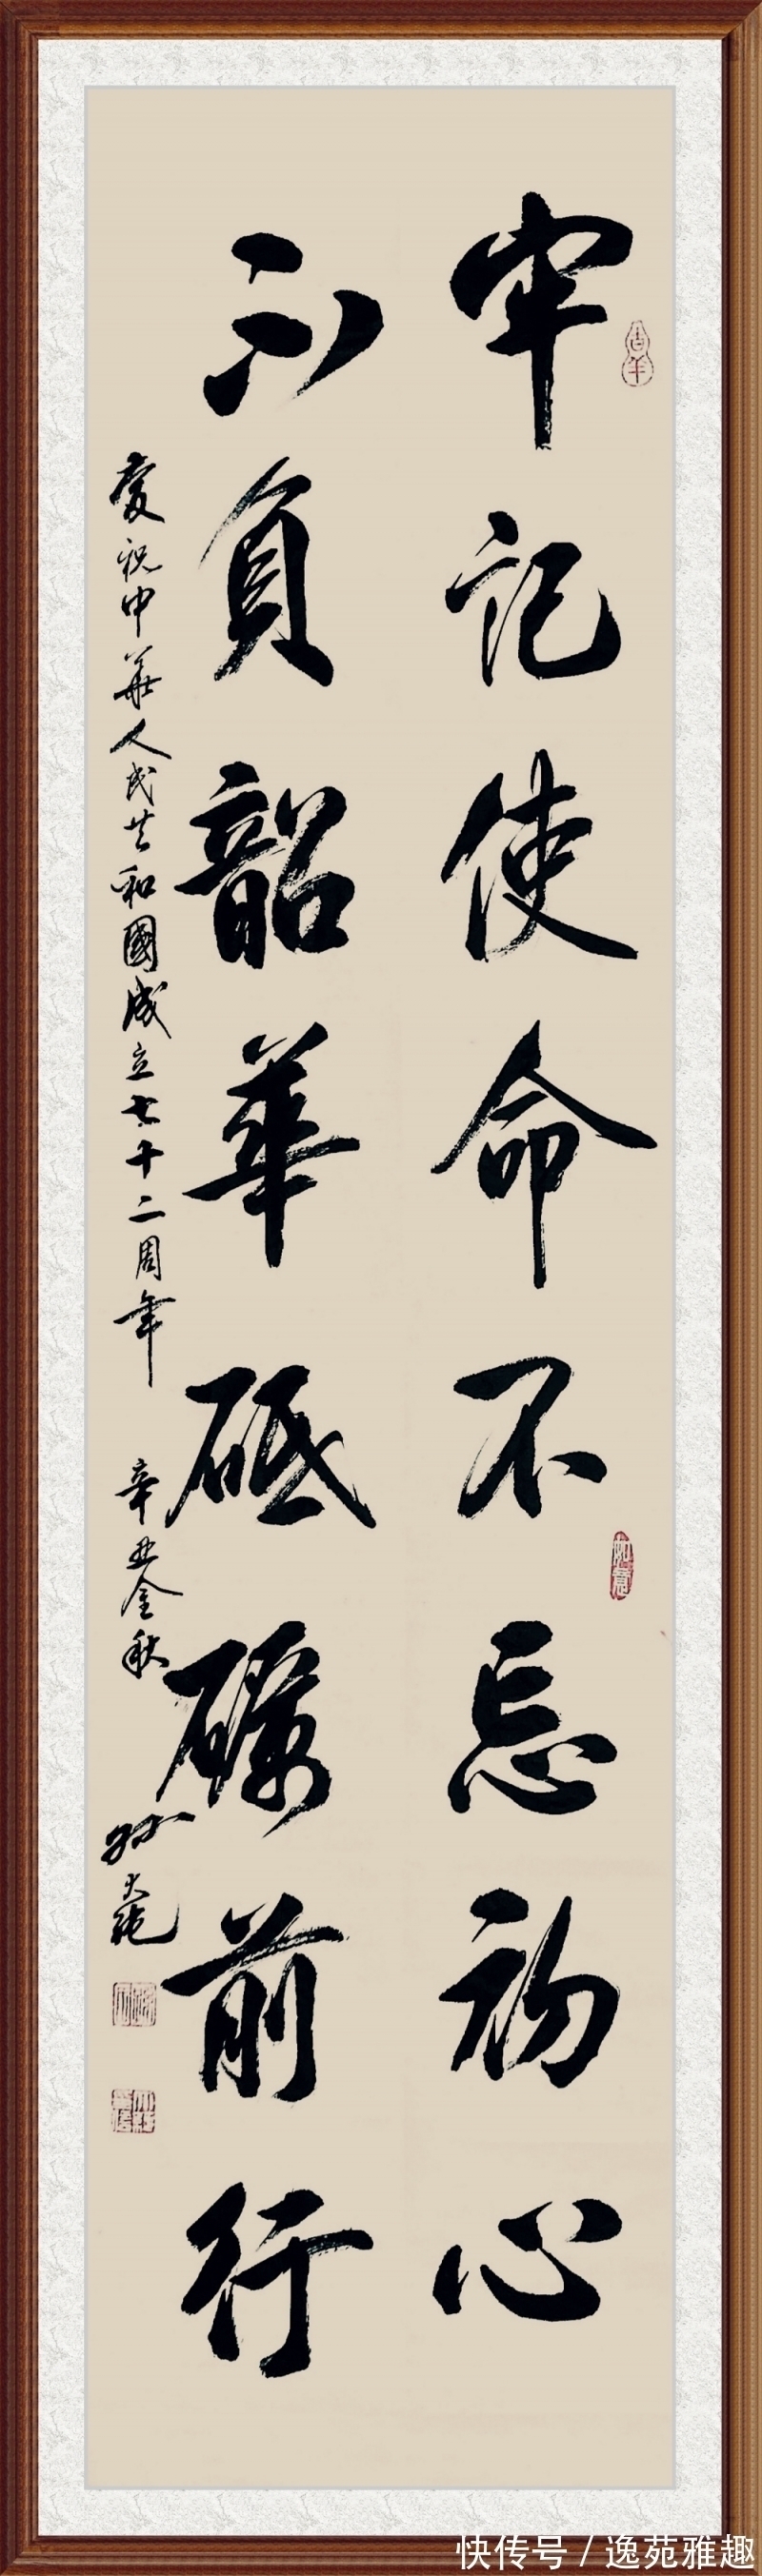 牢记使命不忘初心
不負韶華砥礪前行
慶祝中華人民共和國成立七十二周年 辛丑金秋 孙大
吉羊
如意
快传号 / 逸苑雅趣